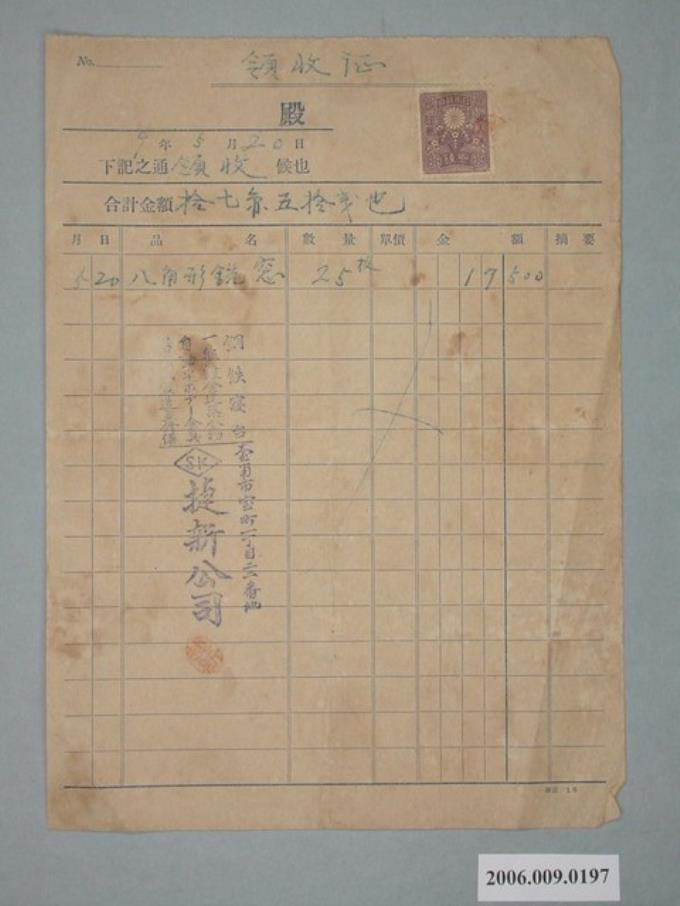 No.
領收証
殿
9年5月20日
下記之通領收候也
合計金額拾七円五拾銭也
月 日 品名 數量 單價 金額 摘要
5 20 八角形鏡窓 25枚 17 500
鋼鉄寝台
台南市宝町一丁目二二番地
SK
捷新公司
16
2006.009.0197